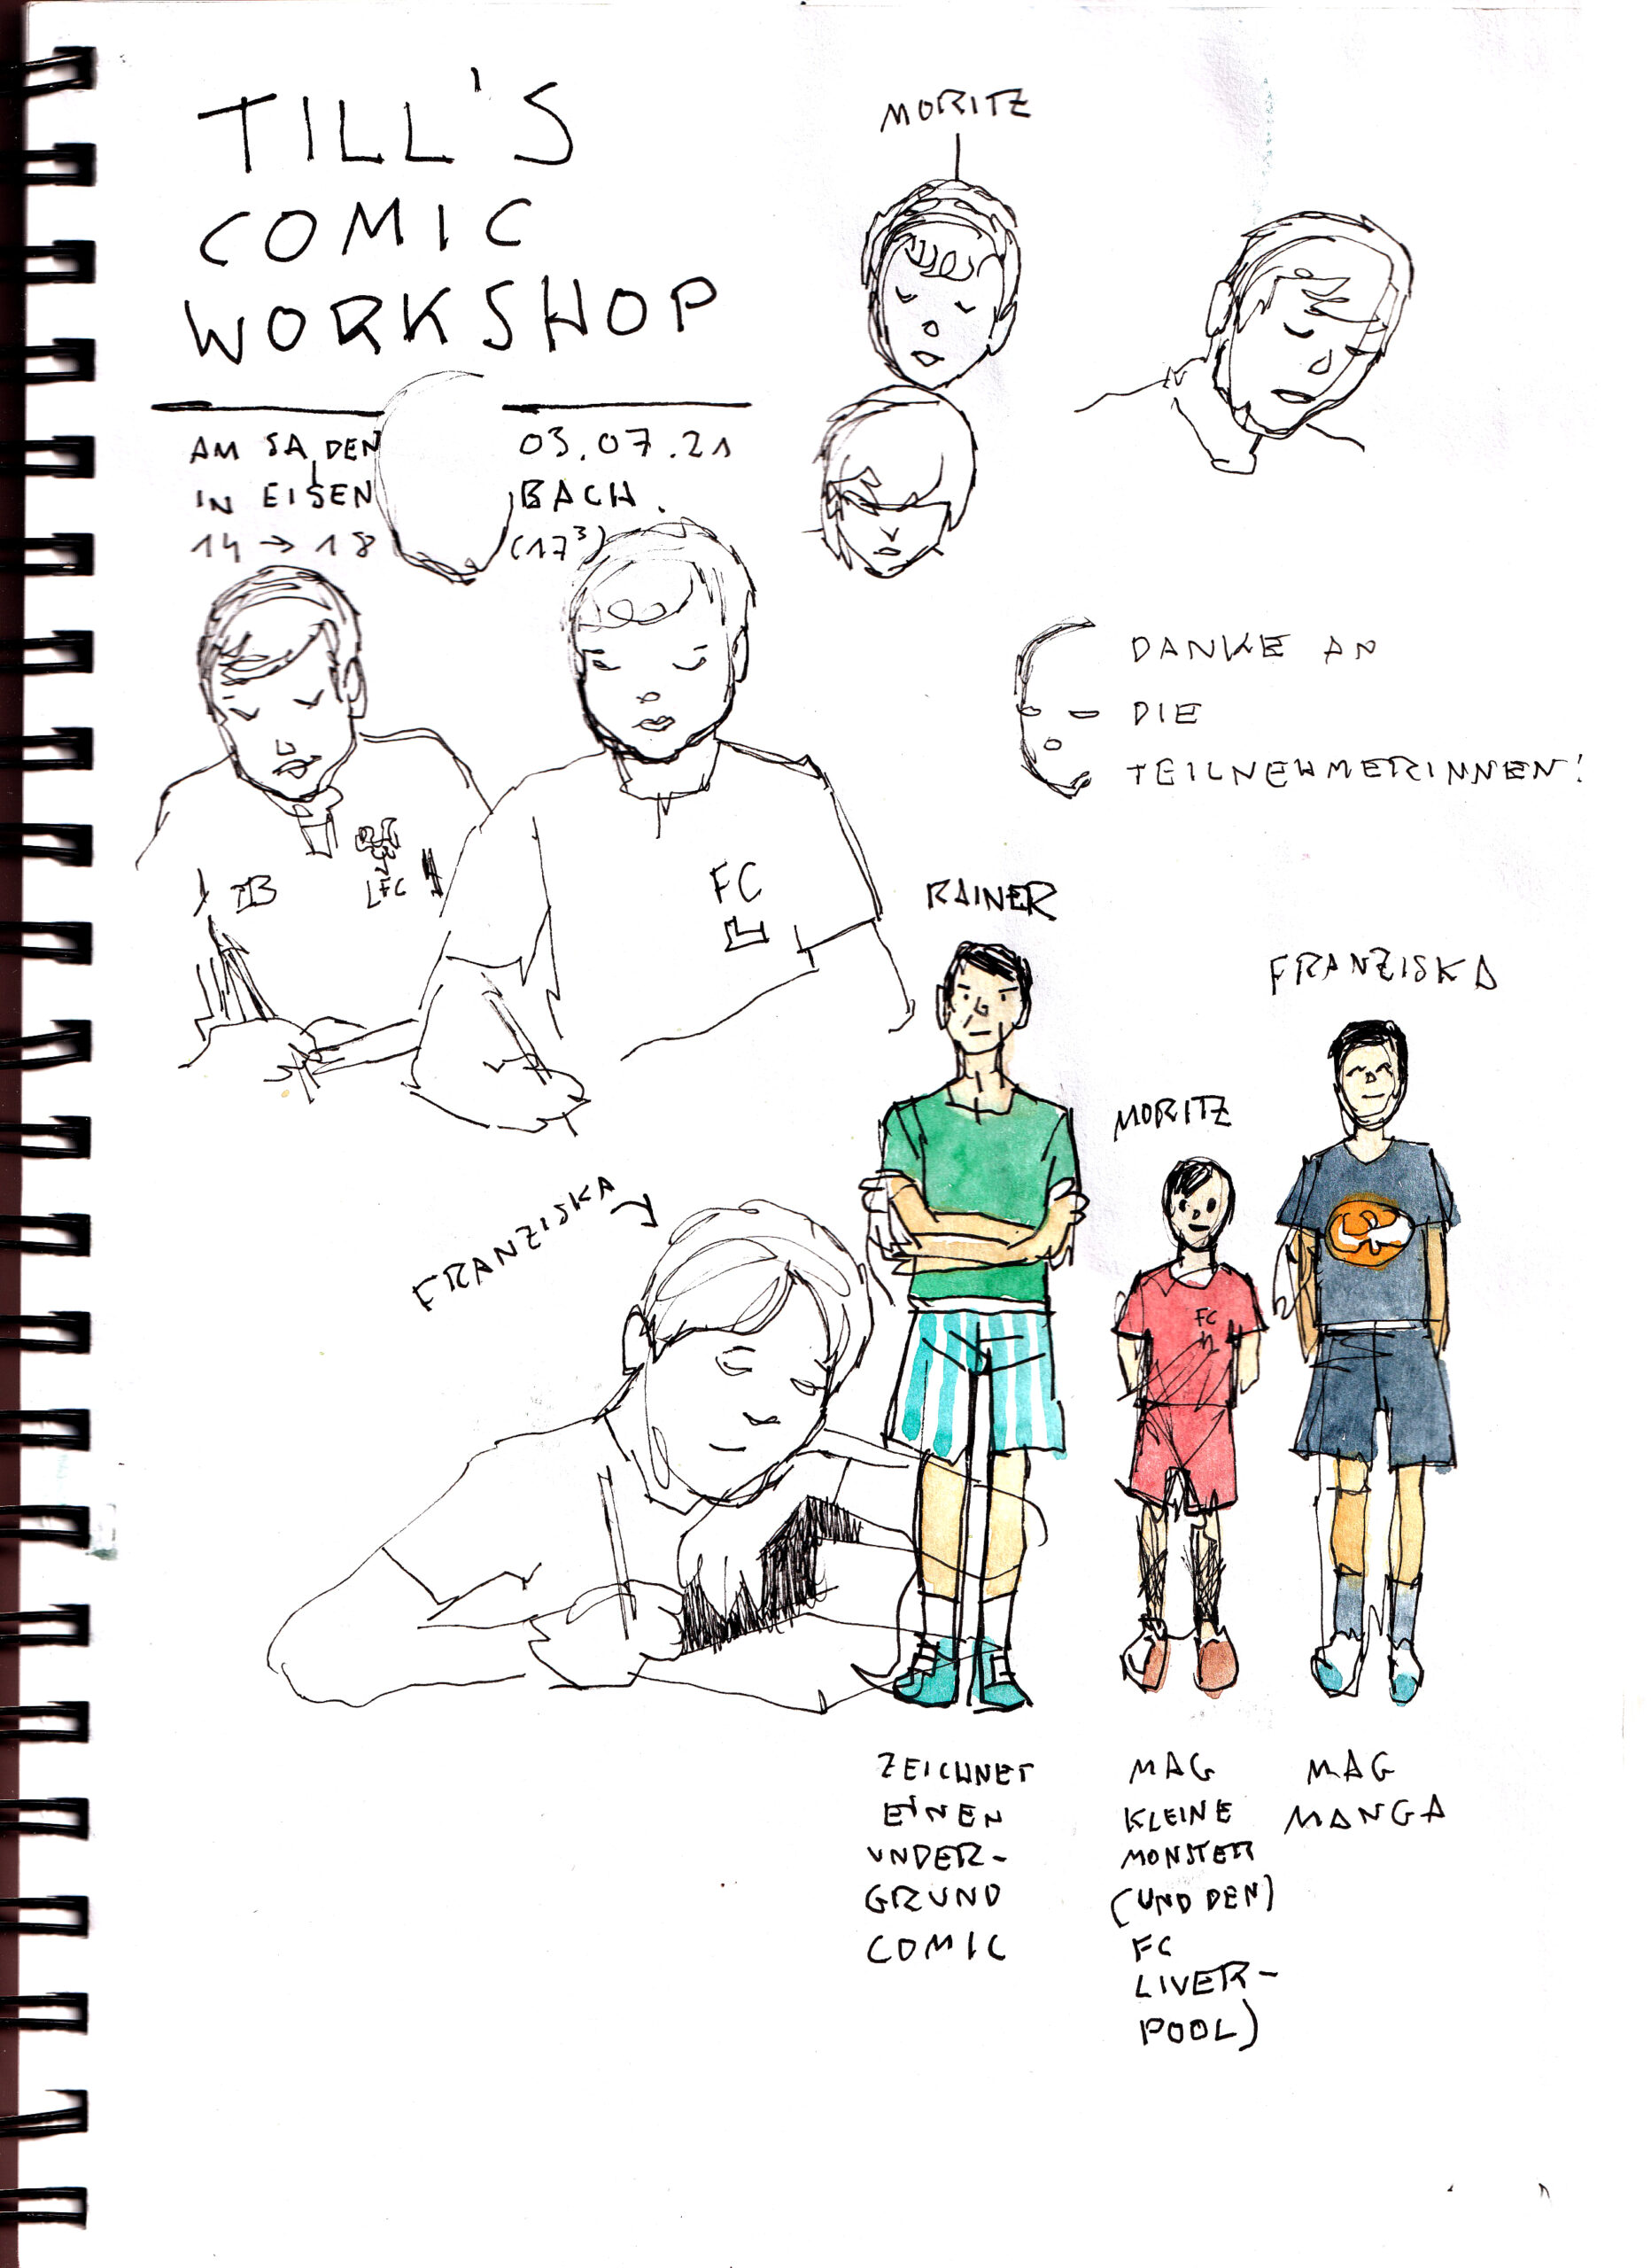 TILL'S
COMIC
WORKSHOP
AM SA, DEN 03.07.21
IN EISENBACH.
14 → 18 (17³)
MORITZ
DANKE AN
DIE
TEILNEHMERINNEN!
LFC
FC
L
RAINER
MORITZ
FRANZISKA
FC
FRANZISKA
ZEICHNET
EINEN
UNDER-
GRUND
COMIC
MAG
KLEINE
MONSTER
(UND DEN)
FC
LIVER-
POOL)
MAG
MANGA